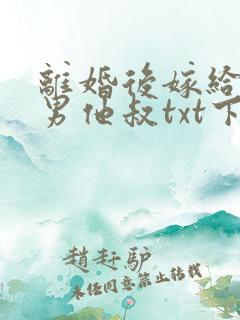 離婚後嫁給
男他叔txt下
趙赶驴
未经同意禁止转载